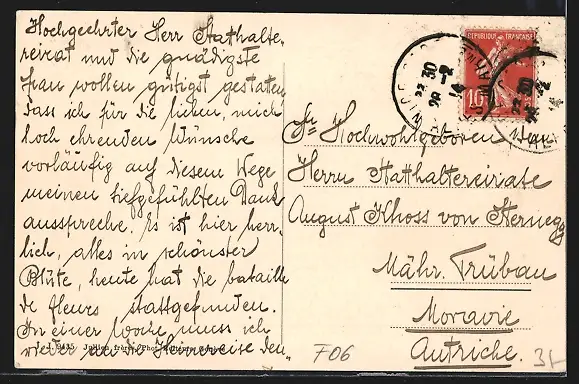 Hochgeehrter Herr Statthalte-
reirat und die gnädigste
Frau wollen gütigst gestatten
dass ich für die lieben, mich
hoch ehrenden Wünsche
vorläufig auf diesem Wege
meinen tiefgefühlten Dank
ausspreche. Es ist hier herr-
lich, alles in schönster
Blüte, heute hat die bataille
de fleurs stattgefunden.
In einer Woche muss ich
wieder an die Heimreise den-
J. J. Jullien frères, Phot.
REPUBLIQUE FRANÇAISE
10
Sr Hochwohlgeboren
Herrn Statthaltereirate
August Khoss von Sternegg
Mähr. Trübau
Moravie
Autriche.
706